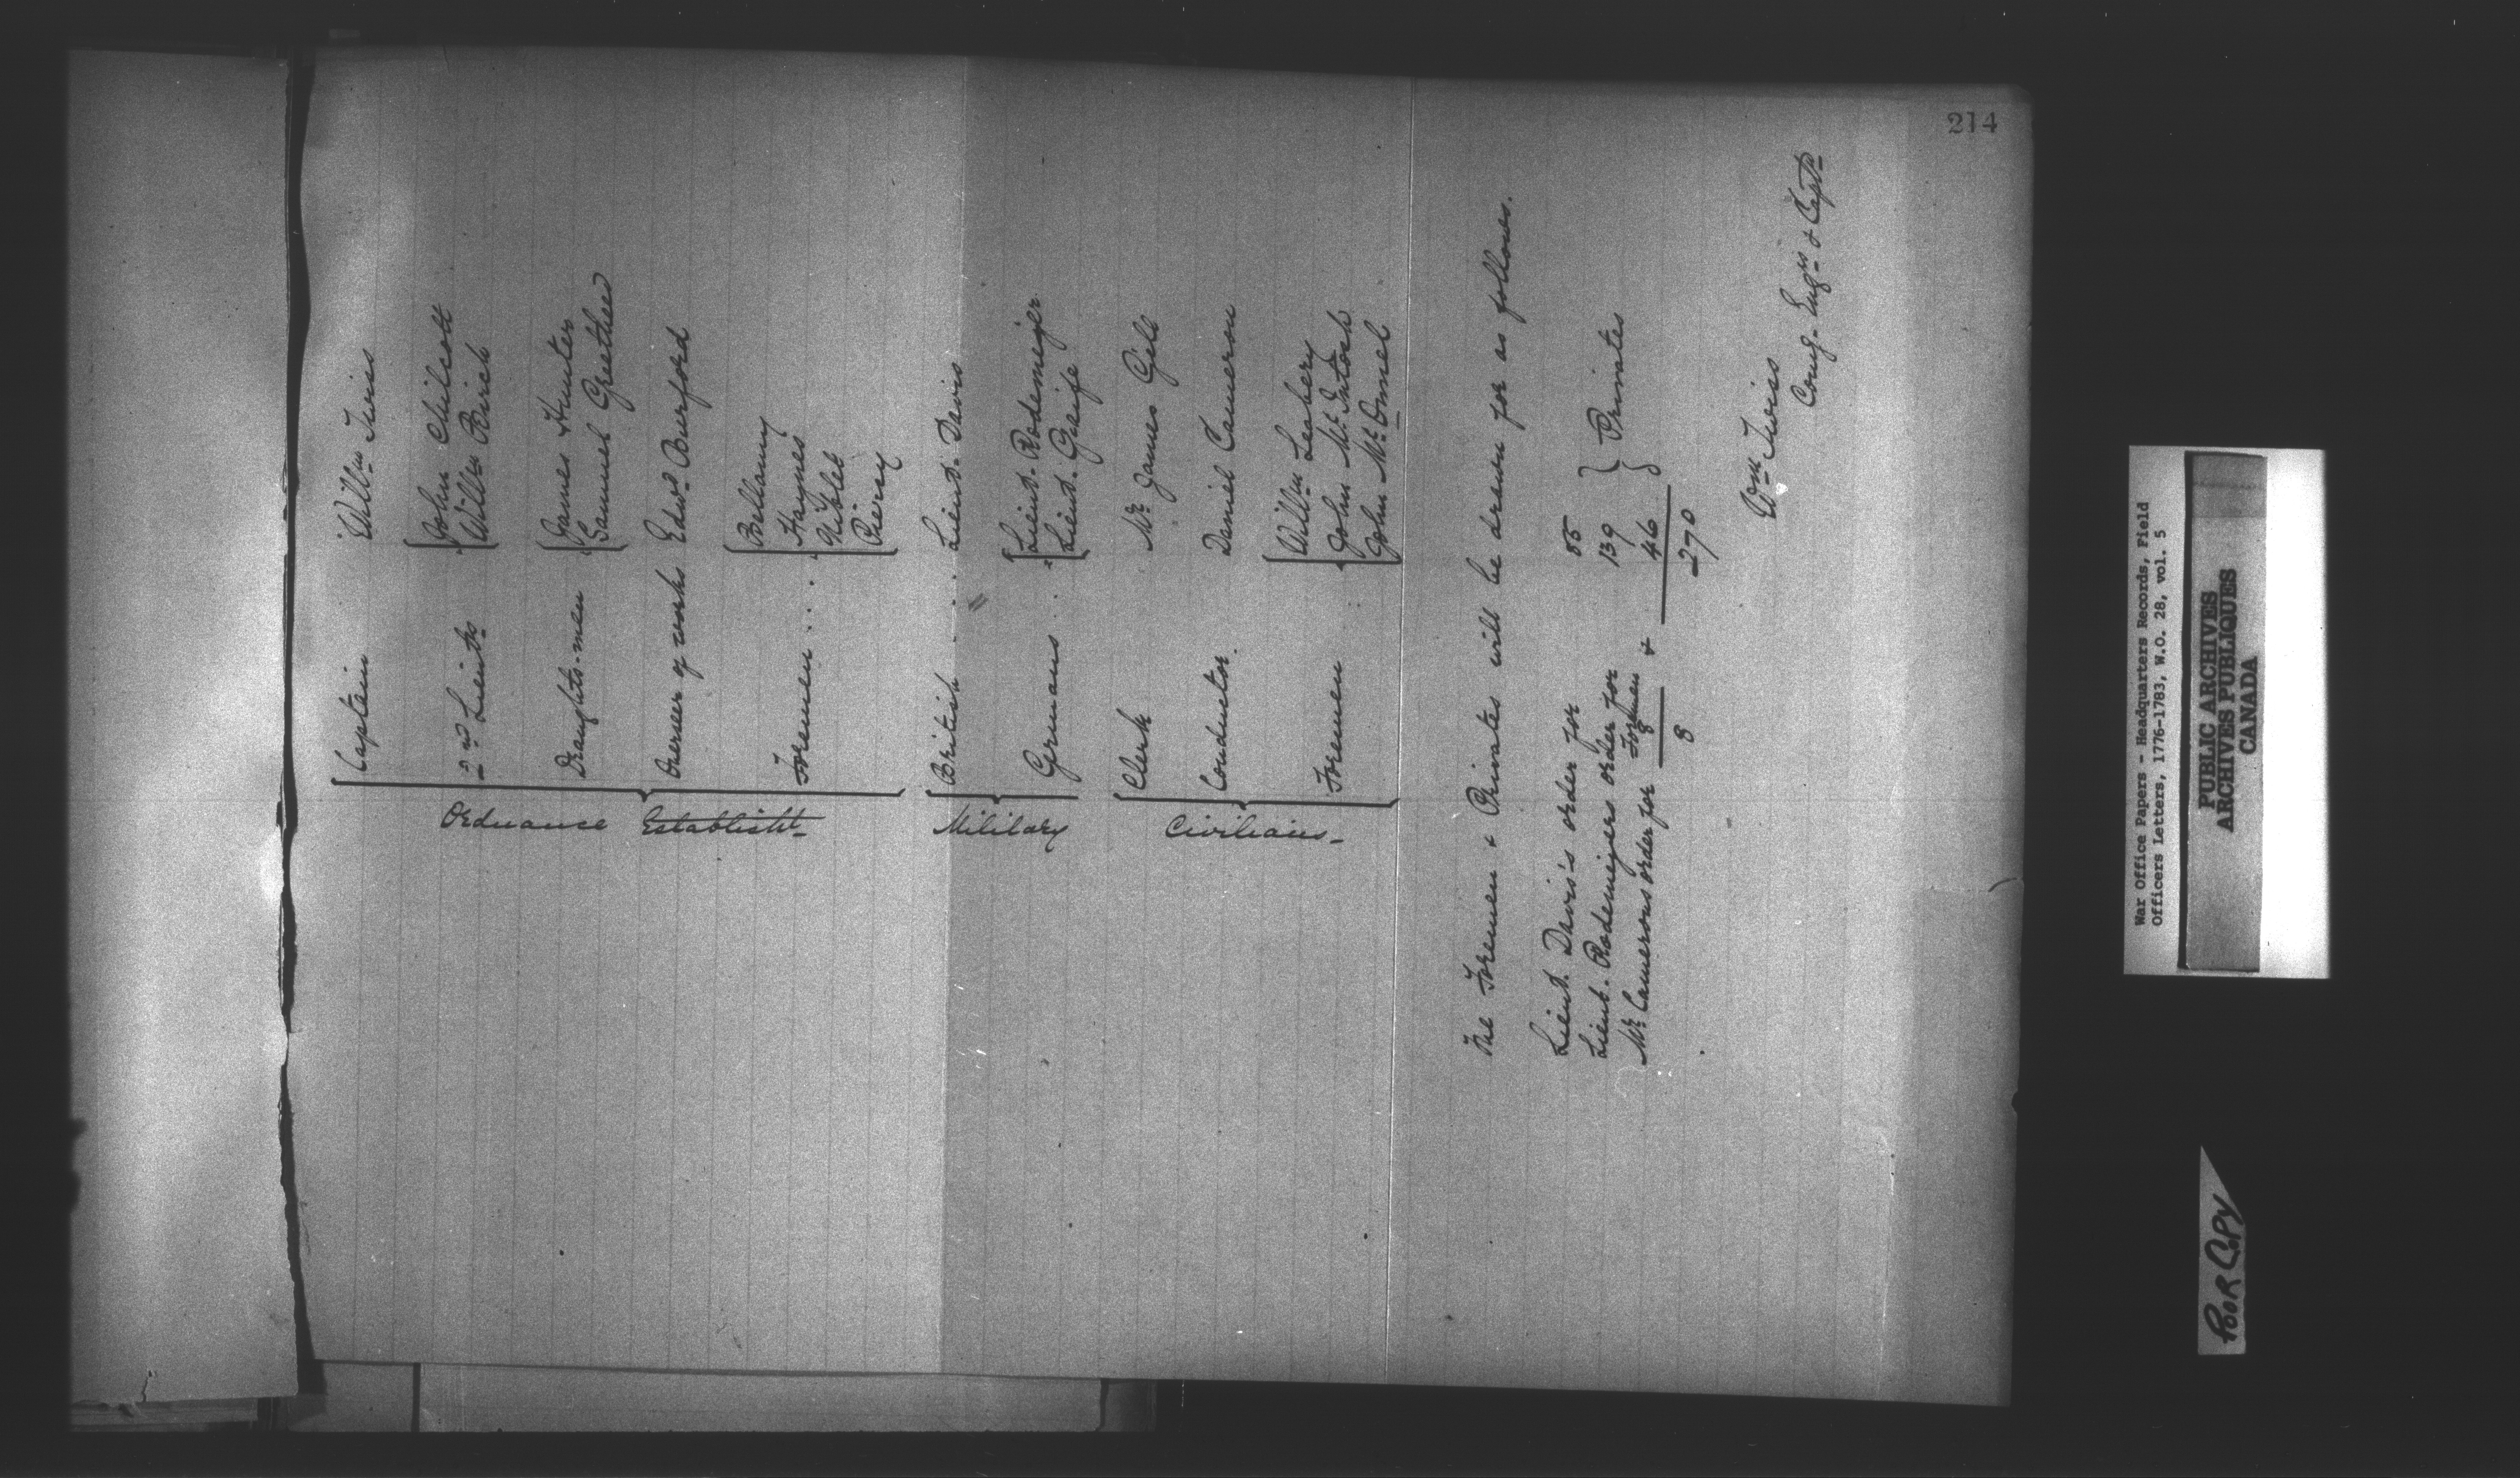 214
Captain Will.m Twiss
2.d Lieuts. John Chilcott
Will.m Birch
Draughts-men James Hunter
Samuel Greether
Ordnance Establisht.
Overseer of works Edw.d Burford
Foremen .... Bellamy
Haynes
Niblet
Piercy
British . . . Lieut. Davis
Military
Germans . . . Lieut. Rodemejer
Lieut. Greife
Clerk Mr. James Gill
Civilians.
Conductor. Daniel Cameron
Foremen ... Will.m Leahery
John Mc.Intosh
John Mc.Onnel
The Foremen & Privates will be drawn for as follows.
Lieut. Davis's order for 85
Lieut. Rodemejers order for 139 } Privates
Mr. Camerons order for Foremen 8 & 46
8 270
Wm. Twiss
Comg. Engrs. & Captn.
War Office Papers - Headquarters Records, Field
Officers Letters, 1776-1783, W.O. 28, vol. 5
PUBLIC ARCHIVES
ARCHIVES PUBLIQUES
CANADA
POOR COPY